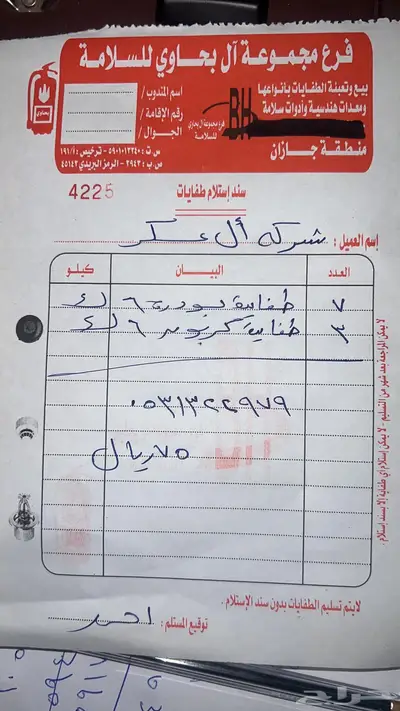 فرع مجموعة آل بحاوي للسلامة
بيع وتعبئة الطفايات بأنواعها
ومعدات هندسية وأدوات سلامة
BH
فرع مجموعة آل بحاوي
للسلامة
منطقة جازان
اسم المندوب /
رقم الإقامة /
الجوال /
س ت : ٥٩٠١٠١٢٢٤٠ - ترخيص : ١٩١/أ
ص ب : ٢٩٤٣ - الرمز البريدي ٤٥١٤٢
بحاوي
4225
سند إستلام طفايات
إسم العميل : شركة آل عسكر
العدد البيان كيلو
٧ طفاية بودرة ٦ ك
٣ طفاية كربون ٦ ك
٠٥٣١٣٢٢٩٧٩
٧٥ ريال
لا يمكن المراجعة بعد شهر من التسليم - لا يمكن إستلام أي طفاية إلا بسند إستلام .
لايتم تسليم الطفايات بدون سند الإستلام .
توقيع المستلم : احمد
حراج